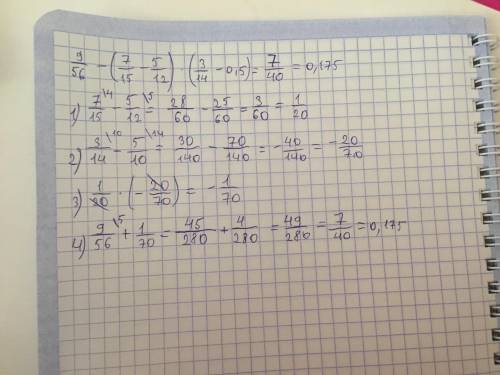 9/56 - (7/15 - 5/12) · (3/14 - 0,5) = 7/40 = 0,175
1) 7/15 \4 - 5/12 \5 = 28/60 - 25/60 = 3/60 = 1/20
2) 3/14 \10 - 5/10 \14 = 30/140 - 70/140 = -40/140 = -20/70
3) 1/20 · (-20/70) = -1/70
4) 9/56 \5 + 1/70 = 45/280 + 4/280 = 49/280 = 7/40 = 0,175